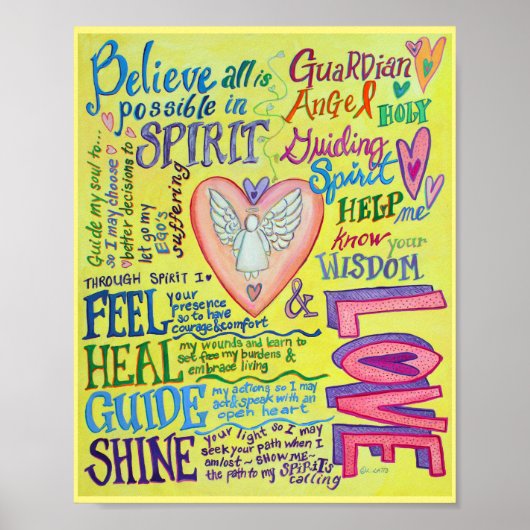 Believe all is
possible in
SPIRIT
Guide my soul to...
so I may choose
better decisions to
let go my
EGO's
suffering
GUARDIAN
ANGEL
HOLY
Guiding
Spirit
HELP me
know your
WISDOM
& LOVE
THROUGH SPIRIT I
FEEL your
presence
so to have
courage & comfort
HEAL my wounds and learn to
set free my burdens &
embrace living
GUIDE my actions, so I may
act & speak with an
open heart
SHINE your light so I may
seek your path when I
am lost ~ SHOW ME ~
the path to my SPIRITS
calling